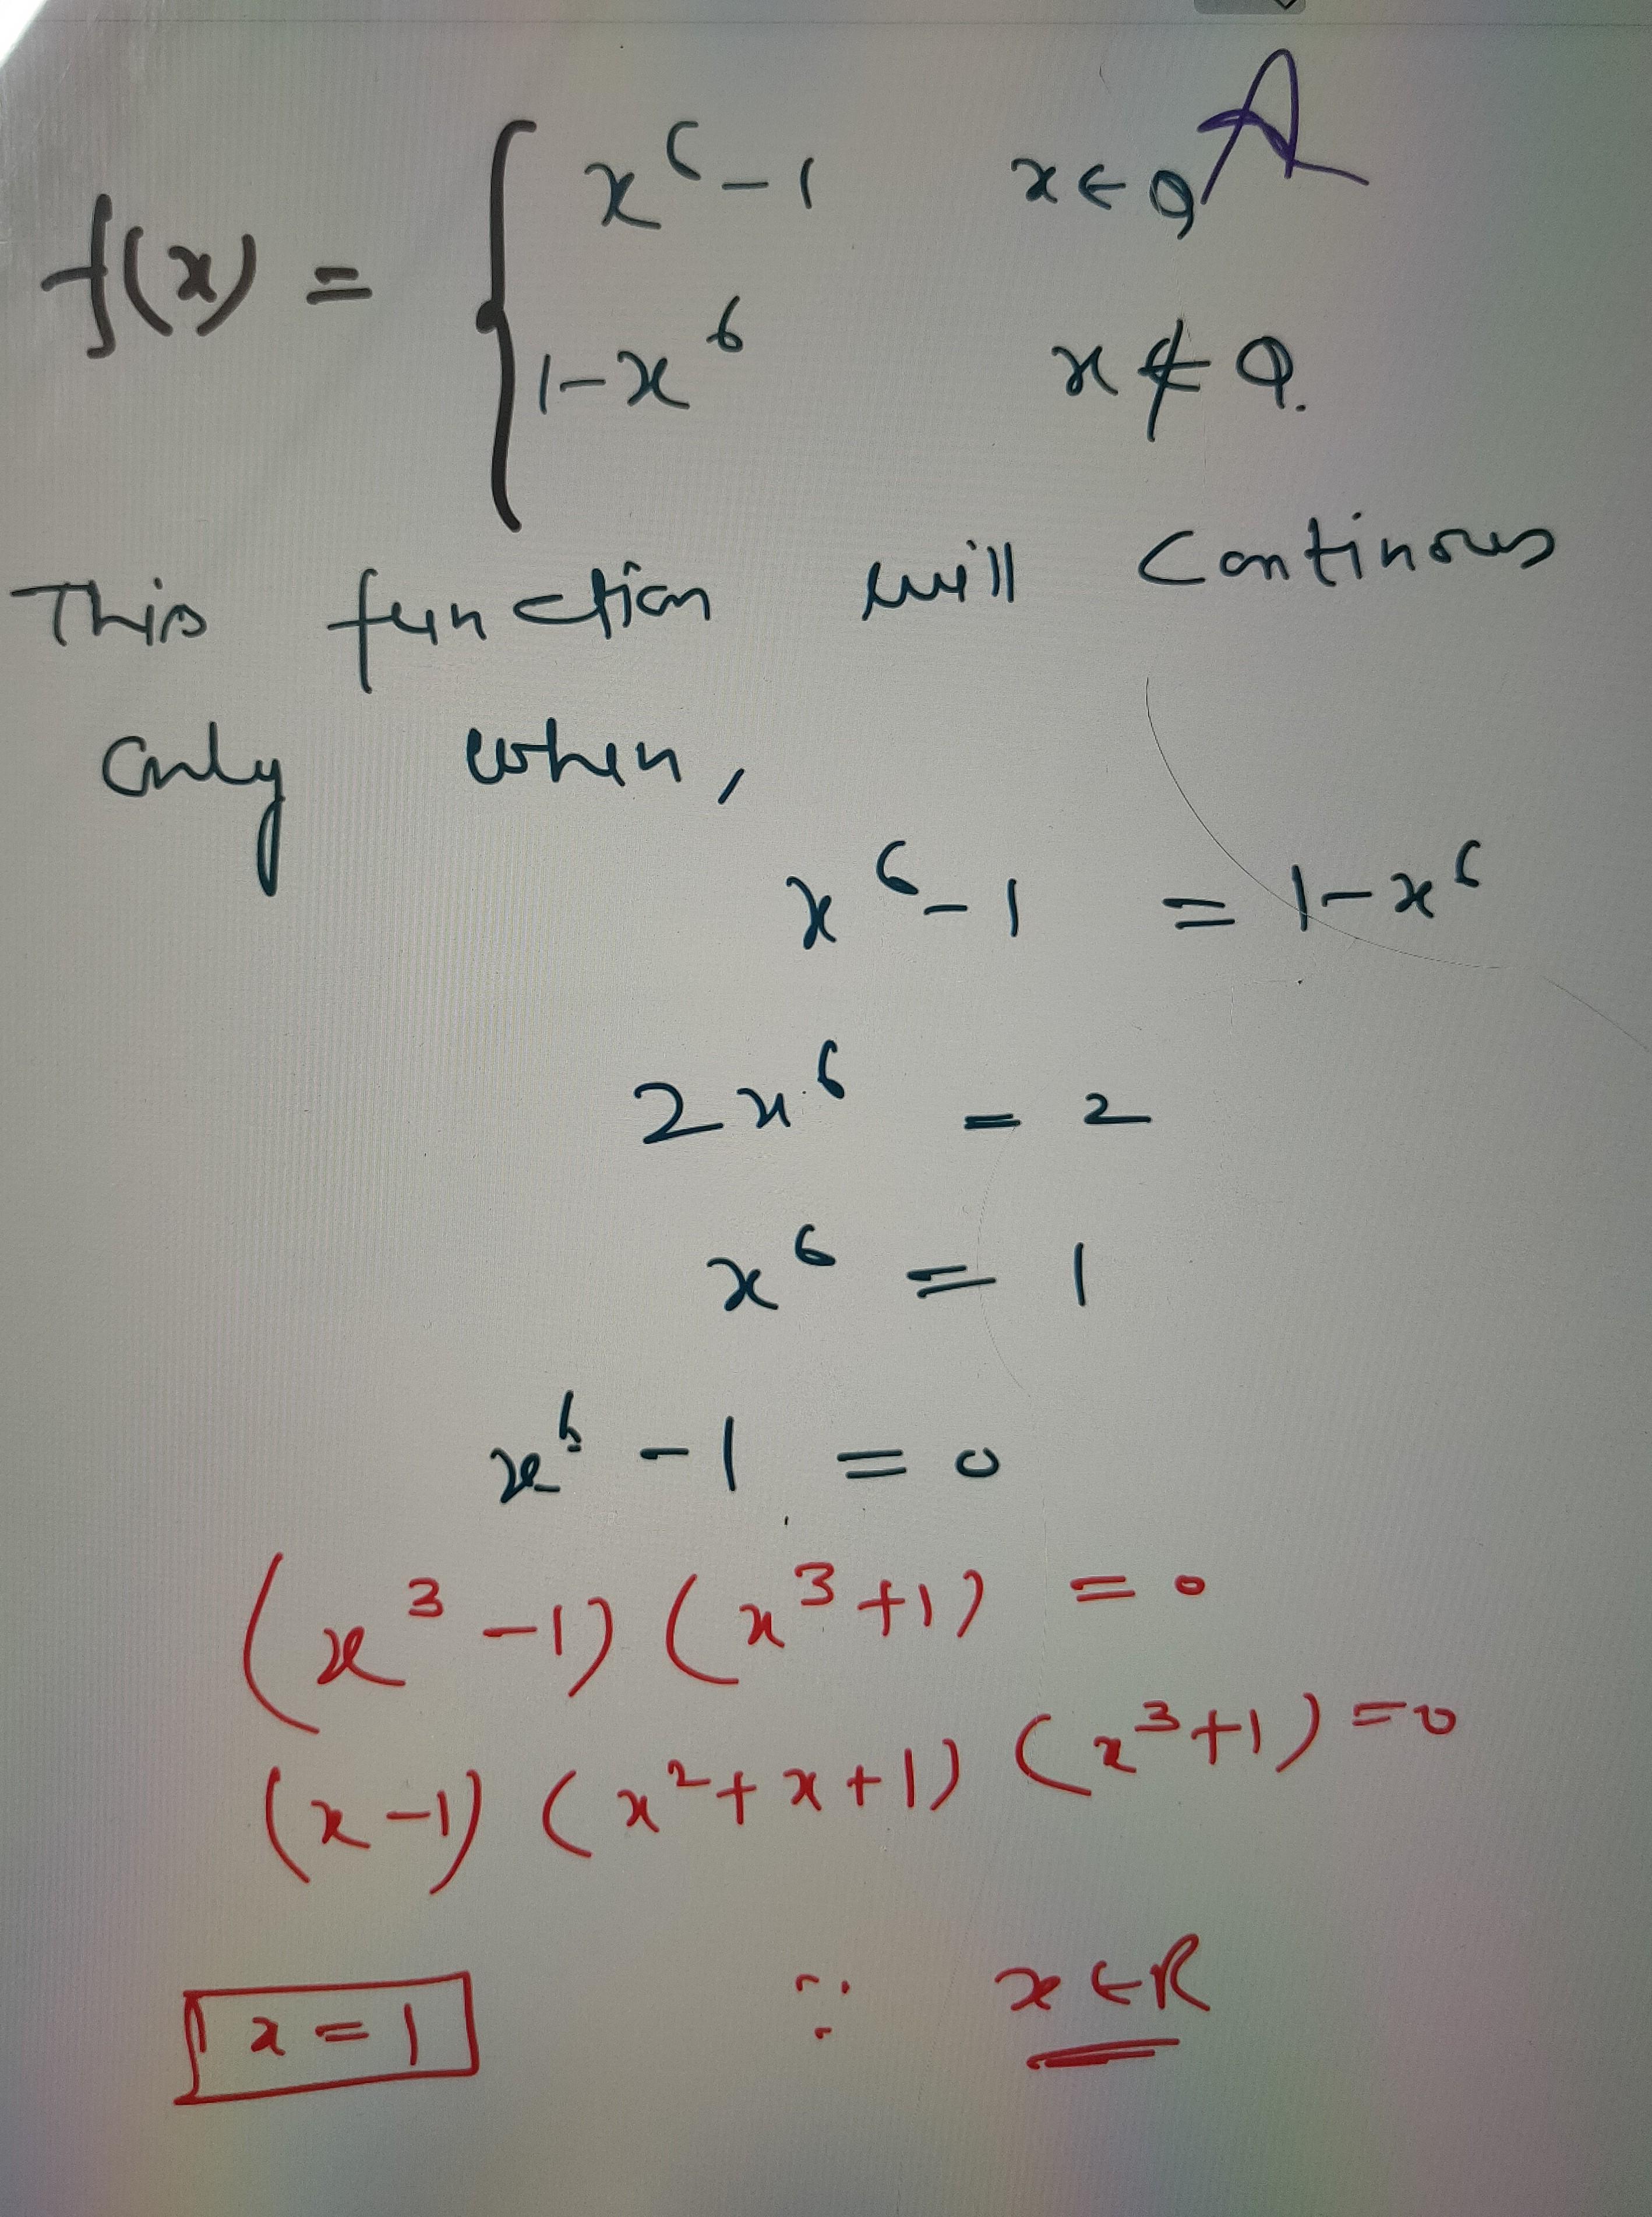 f(x) = { x⁶-1 x∈Q
1-x⁶ x∉Q.
This function will continous
only when,
x⁶-1 = 1-x⁶
2x⁶ = 2
x⁶ = 1
x⁶ - 1 = 0
(x³-1)(x³+1) = 0
(x-1)(x²+x+1)(x³+1)=0
x=1 ∵ x∈R